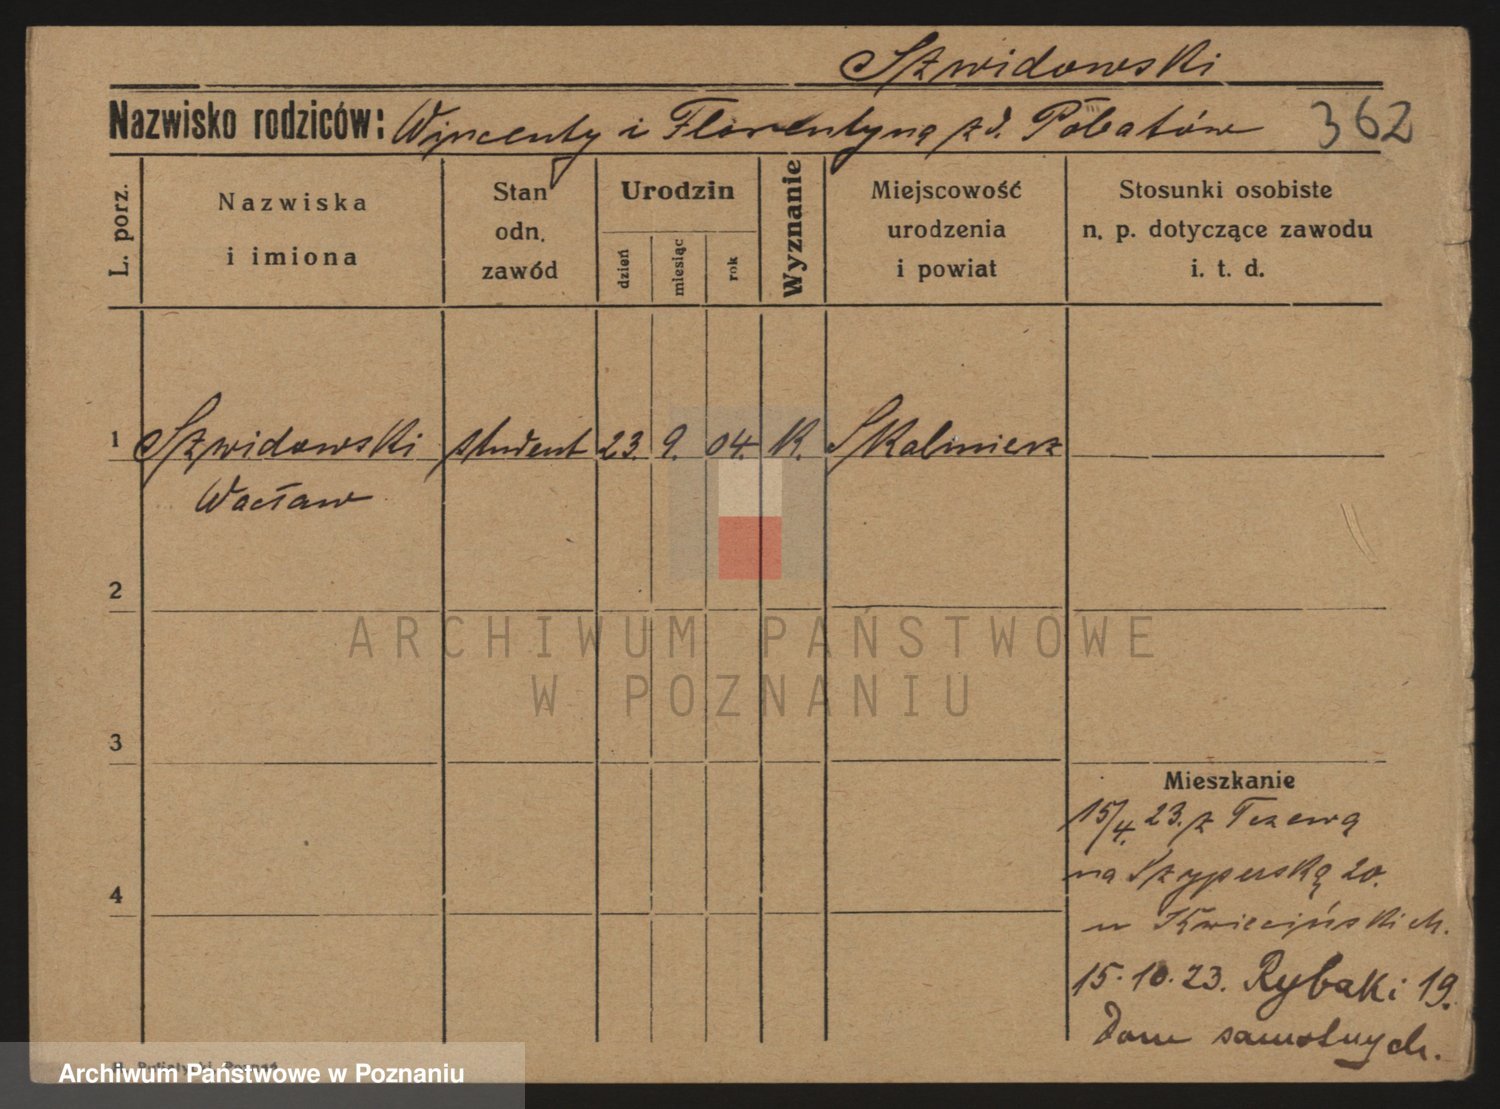 Szwidowski
Nazwisko rodziców: Wincenty i Florentyną z d. Pobatów 362
L. porz.
Nazwiska
i imiona
Stan
odn.
zawód
Urodzin
dzień
miesiąc
rok
Wyznanie
Miejscowość
urodzenia
i powiat
Stosunki osobiste
n. p. dotyczące zawodu
i. t. d.
1 Szwidowski student 23. 9. 04. K. Skalmierz
Wacław
2
ARCHIWUM PAŃSTWOWE
W POZNANIU
3
Mieszkanie
15/4. 23. z Tczewa
na Szyperską 20.
4
u Kwiecińskich.
15. 10. 23. Rybaki 19.
Dom samotnych.
Poznań
Archiwum Państwowe w Poznaniu